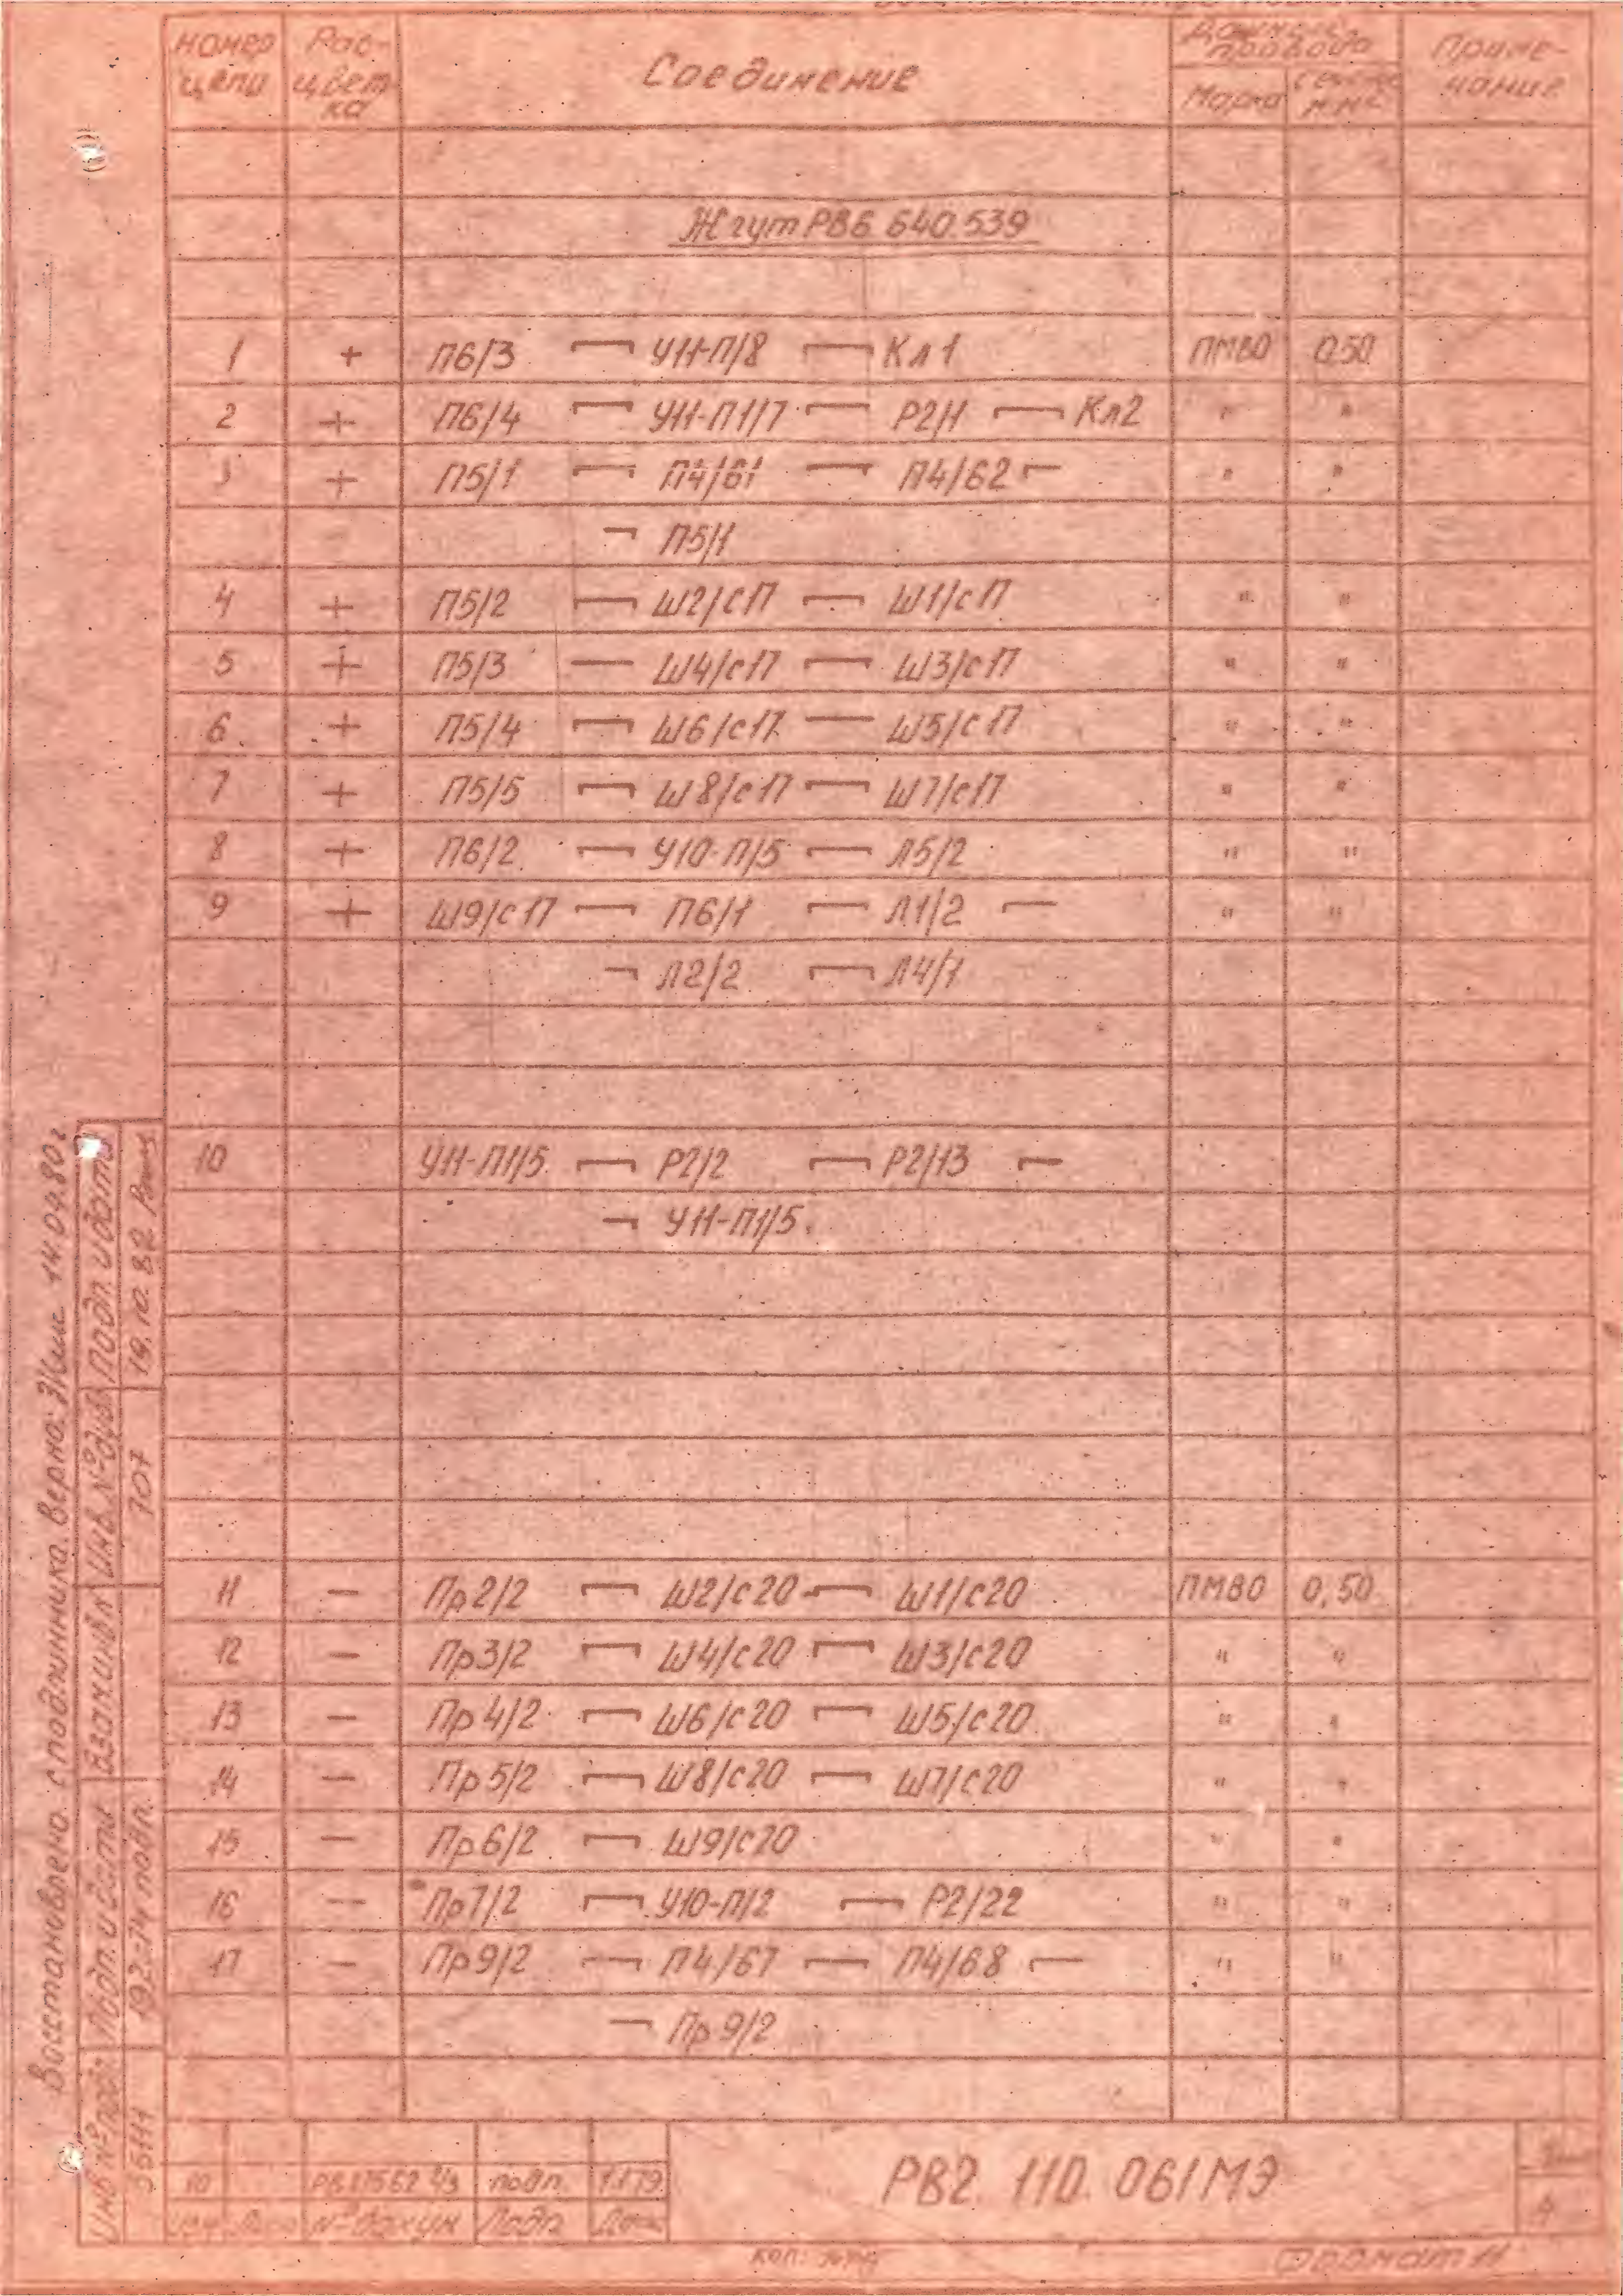 Номер цепи Рас-цвет-ка Соединение Данные провода Марка Сечен. мм² Приме-чание
Жгут РВ6 640.539
1 + П6/3 У11-П/8 Кл1 ПМВО 0.50
2 + П6/4 У11-П1/7 Р2/1 Кл2 " "
3 + П5/1 П4/61 П4/62 " "
П5/1
4 + П5/2 Ш2/с17 Ш1/с17 " "
5 + П5/3 Ш4/с17 Ш3/с17 " "
6 + П5/4 Ш6/с17 Ш5/с17 " "
7 + П5/5 Ш8/с17 Ш7/с17 " "
8 + П6/2 У10-П/5 Л5/2 " "
9 + Ш9/с17 П6/1 Л1/2 " "
Л2/2 Л4/1
10 У11-П1/5 Р2/2 Р2/13
У11-П1/5
11 — Пр2/2 Ш2/с20 Ш1/с20 ПМВО 0,50
12 — Пр3/2 Ш4/с20 Ш3/с20 " "
13 — Пр4/2 Ш6/с20 Ш5/с20 " "
14 — Пр5/2 Ш8/с20 Ш7/с20 " "
15 — Пр6/2 Ш9/с20 " "
16 — Пр7/2 У10-П/2 Р2/22 " "
17 — Пр9/2 П4/67 П4/68 " "
Пр9/2
Восстановлено с подлинника. Верно: 14.04.80г
Инв. № подл. Подп. и дата Взам инв.№ Инв. № дубл. Подп. и дата
192-74 подл. 707 19.10.82
10 подп. 1.1.79
Изм Лист № докум Подп. Дата
РВ2. 110. 061МЭ
4
Коп:
Формат 11